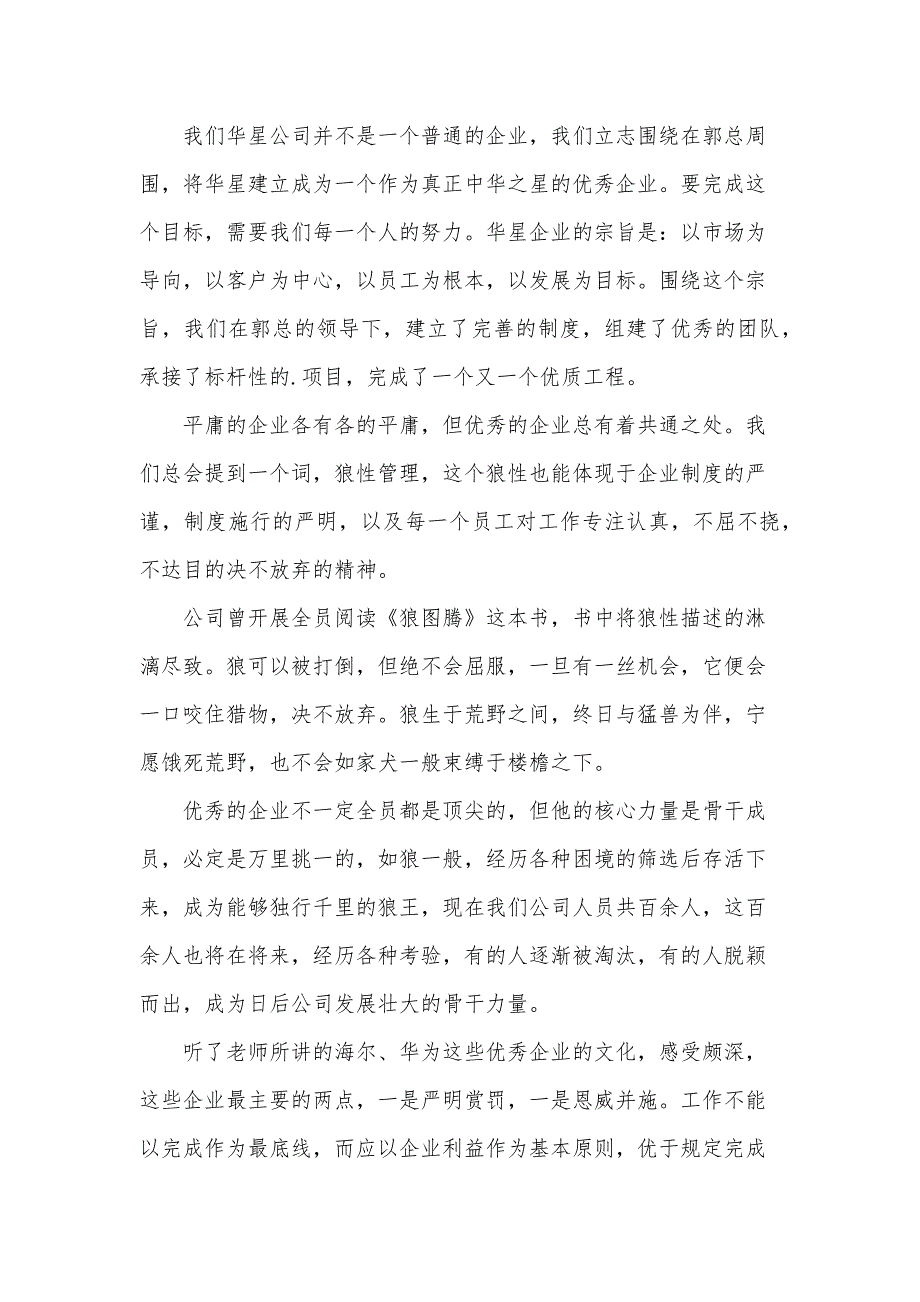 我们华星公司并不是一个普通的企业，我们立志围绕在郭总周
围，将华星建立成为一个作为真正中华之星的优秀企业。要完成这
个目标，需要我们每一个人的努力。华星企业的宗旨是：以市场为
导向，以客户为中心，以员工为根本，以发展为目标。围绕这个宗
旨，我们在郭总的领导下，建立了完善的制度，组建了优秀的团队，
承接了标杆性的.项目，完成了一个又一个优质工程。
平庸的企业各有各的平庸，但优秀的企业总有着共通之处。我
们总会提到一个词，狼性管理，这个狼性也能体现于企业制度的严
谨，制度施行的严明，以及每一个员工对工作专注认真，不屈不挠，
不达目的决不放弃的精神。
公司曾开展全员阅读《狼图腾》这本书，书中将狼性描述的淋
漓尽致。狼可以被打倒，但绝不会屈服，一旦有一丝机会，它便会
一口咬住猎物，决不放弃。狼生于荒野之间，终日与猛兽为伴，宁
愿饿死荒野，也不会如家犬一般束缚于楼檐之下。
优秀的企业不一定全员都是顶尖的，但他的核心力量是骨干成
员，必定是万里挑一的，如狼一般，经历各种困境的筛选后存活下
来，成为能够独行千里的狼王，现在我们公司人员共百余人，这百
余人也将在将来，经历各种考验，有的人逐渐被淘汰，有的人脱颖
而出，成为日后公司发展壮大的骨干力量。
听了老师所讲的海尔、华为这些优秀企业的文化，感受颇深，
这些企业最主要的两点，一是严明赏罚，一是恩威并施。工作不能
以完成作为最底线，而应以企业利益作为基本原则，优于规定完成